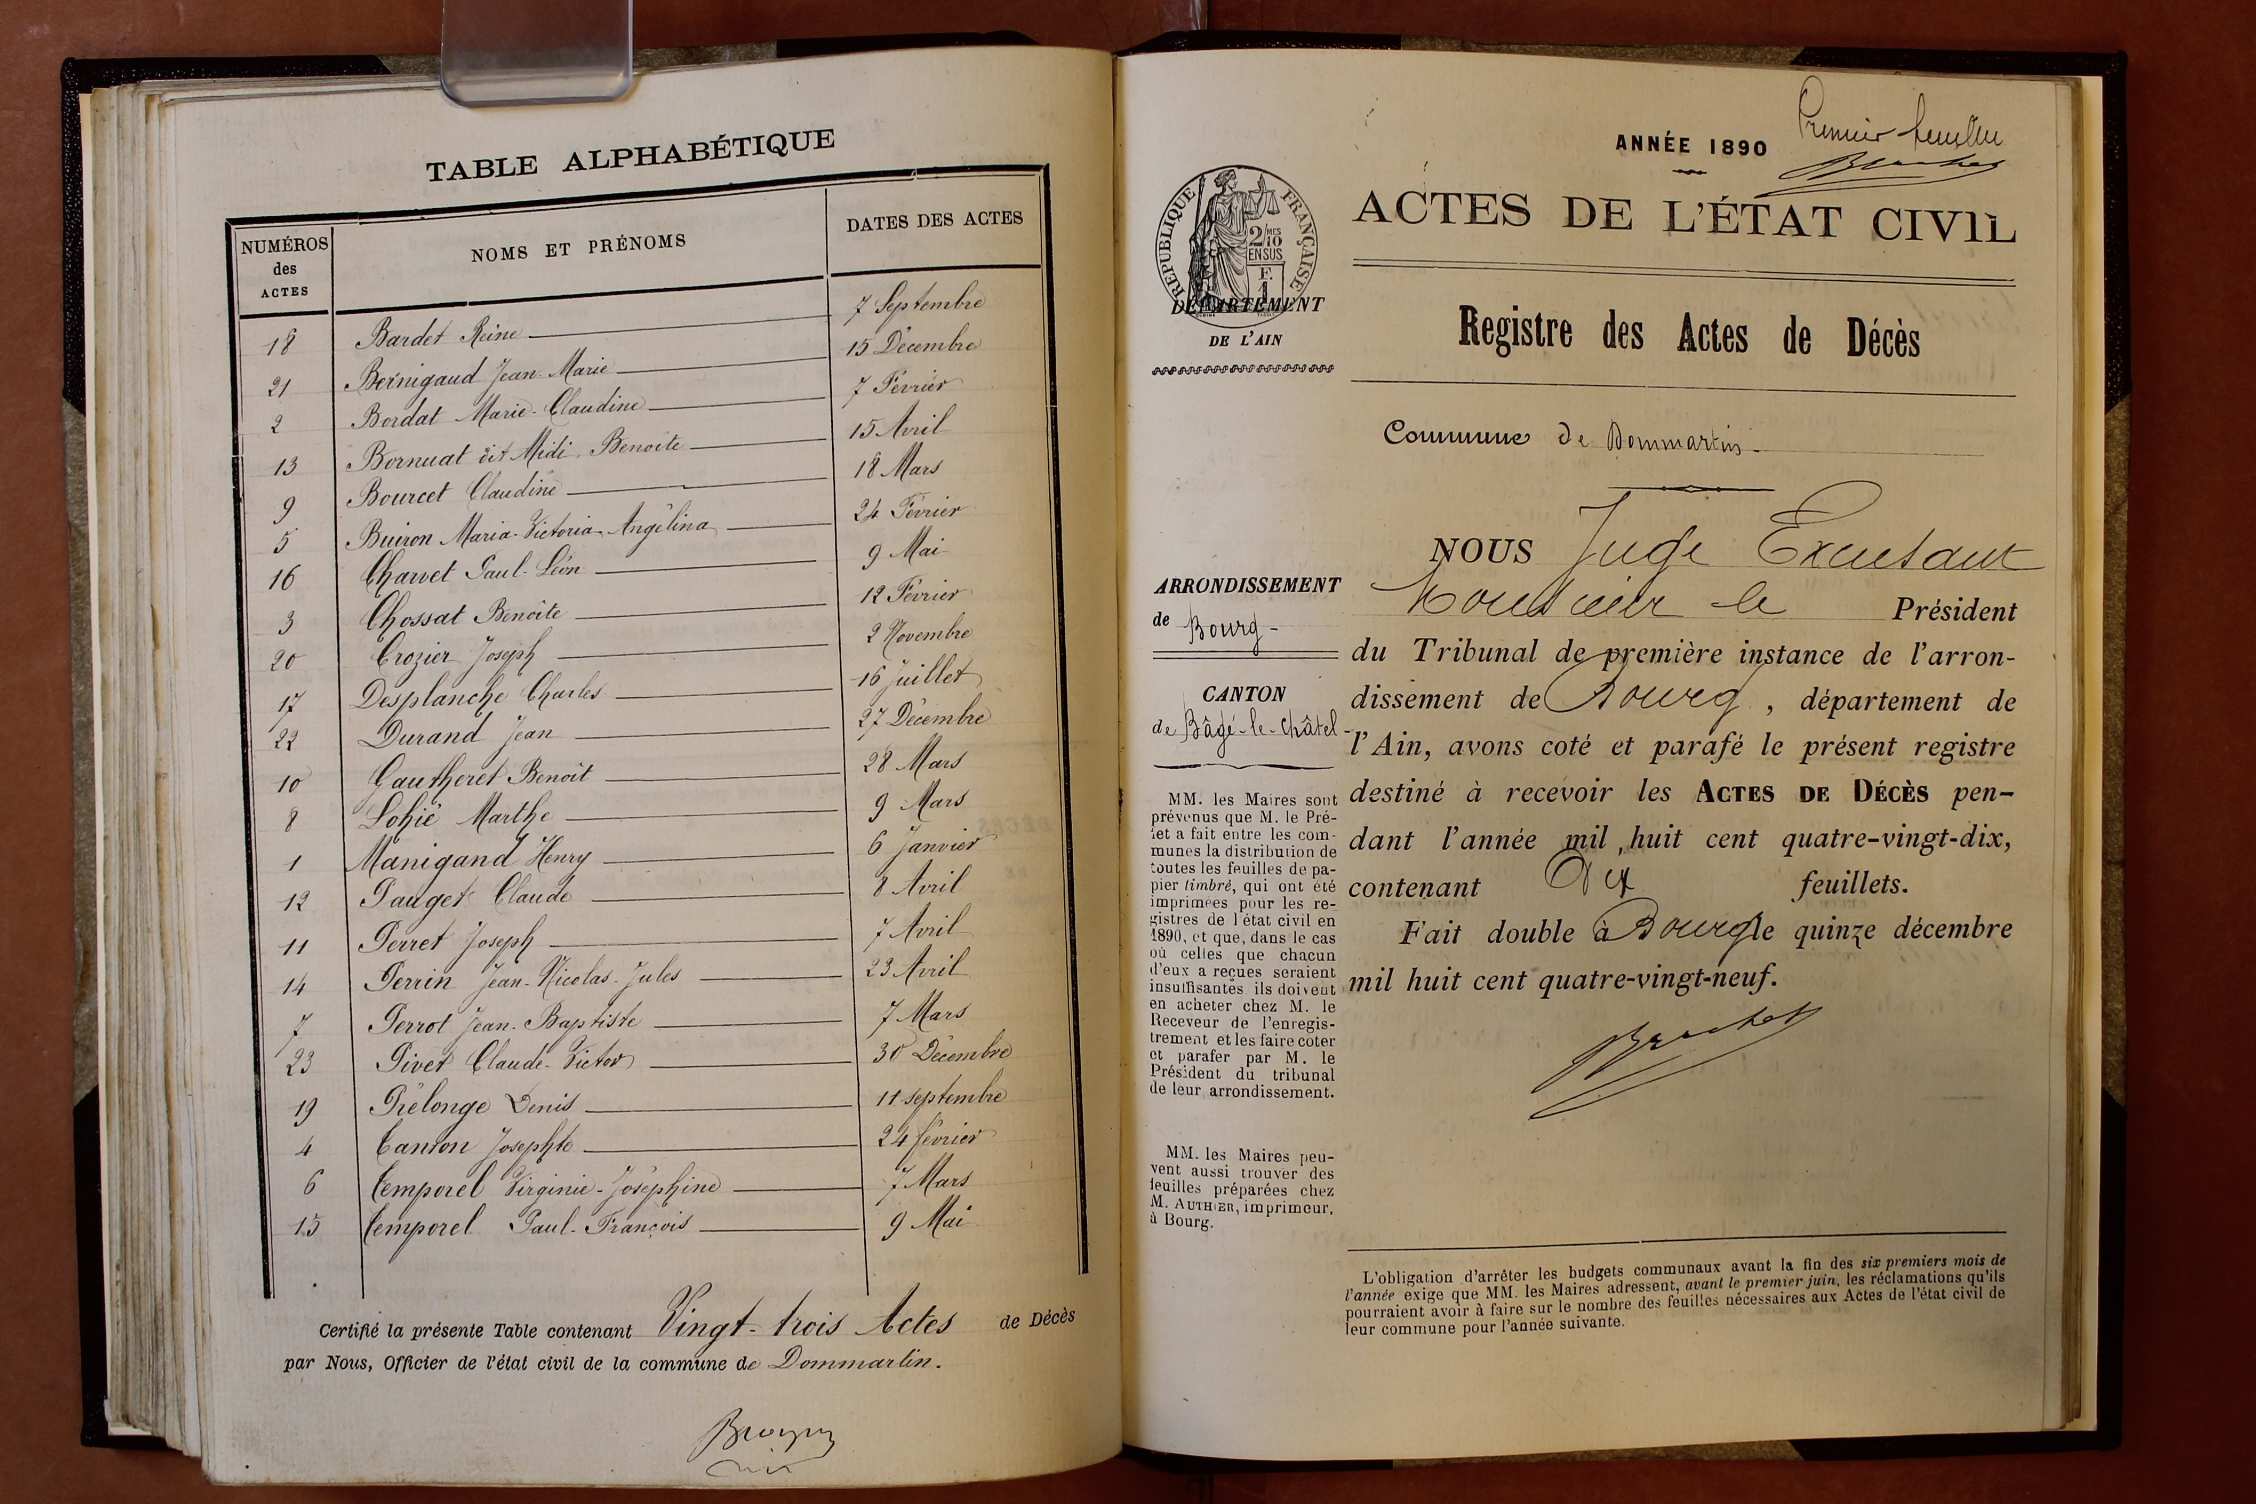 TABLE ALPHABÉTIQUE
NUMÉROS des ACTES NOMS ET PRÉNOMS DATES DES ACTES
18 Bardet Reine 7 Septembre
21 Bernigaud Jean-Marie 15 Décembre
2 Bordat Marie-Claudine 7 Février
13 Bornuat dit Midi Benoîte 15 Avril
9 Bourcet Claudine 18 Mars
5 Buiron Maria-Victoria-Angélina 24 Février
16 Charvet Paul-Léon 9 Mai
3 Chossat Benoîte 12 Février
20 Crozier Joseph 2 Novembre
17 Desplanche Charles 16 Juillet
22 Durand Jean 27 Décembre
10 Gautheret Benoit 28 Mars
8 Lohié Marthe 9 Mars
1 Manigand Henry 6 Janvier
12 Pauget Claude 8 Avril
11 Perret Joseph 7 Avril
14 Perrin Jean-Nicolas-Jules 23 Avril
7 Perrot Jean-Baptiste 7 Mars
23 Pivet Claude-Victor 30 Décembre
19 Prélonge Denis 11 septembre
4 Tanton Josephte 24 février
6 Temporel Virginie-Joséphine 7 Mars
15 Temporel Paul-François 9 Mai
Certifié la présente Table contenant Vingt-trois Actes de Décès
par Nous, Officier de l'état civil de la commune de Dommartin.
Premier feuillet
ANNÉE 1890
ACTES DE L'ÉTAT CIVIL
RÉPUBLIQUE FRANÇAISE
2/10 MES
EN SUS
F.
1
DÉPARTEMENT
DE L'AIN
Registre des Actes de Décès
Commune de Dommartin
ARRONDISSEMENT
de Bourg
CANTON
de Bâgé-le-Châtel
MM. les Maires sont
prévenus que M. le Pré-
fet a fait entre les com-
munes la distribution de
toutes les feuilles de pa-
pier timbré, qui ont été
imprimées pour les re-
gistres de l'état civil en
1890, et que, dans le cas
où celles que chacun
d'eux a reçues seraient
insuffisantes ils doivent
en acheter chez M. le
Receveur de l'enregis-
trement et les faire coter
et parafer par M. le
Président du tribunal
de leur arrondissement.
MM. les Maires peu-
vent aussi trouver des
feuilles préparées chez
M. AUTHIER, imprimeur,
à Bourg.
NOUS Juge Excusant
Monsieur le Président
du Tribunal de première instance de l'arron-
dissement de Bourg, département de
l'Ain, avons coté et parafé le présent registre
destiné à recevoir les ACTES DE DÉCÈS pen-
dant l'année mil huit cent quatre-vingt-dix,
contenant Dix feuillets.
Fait double à Bourg le quinze décembre
mil huit cent quatre-vingt-neuf.
L'obligation d'arrêter les budgets communaux avant la fin des six premiers mois de
l'année exige que MM. les Maires adressent, avant le premier juin, les réclamations qu'ils
pourraient avoir à faire sur le nombre des feuilles nécessaires aux Actes de l'état civil de
leur commune pour l'année suivante.